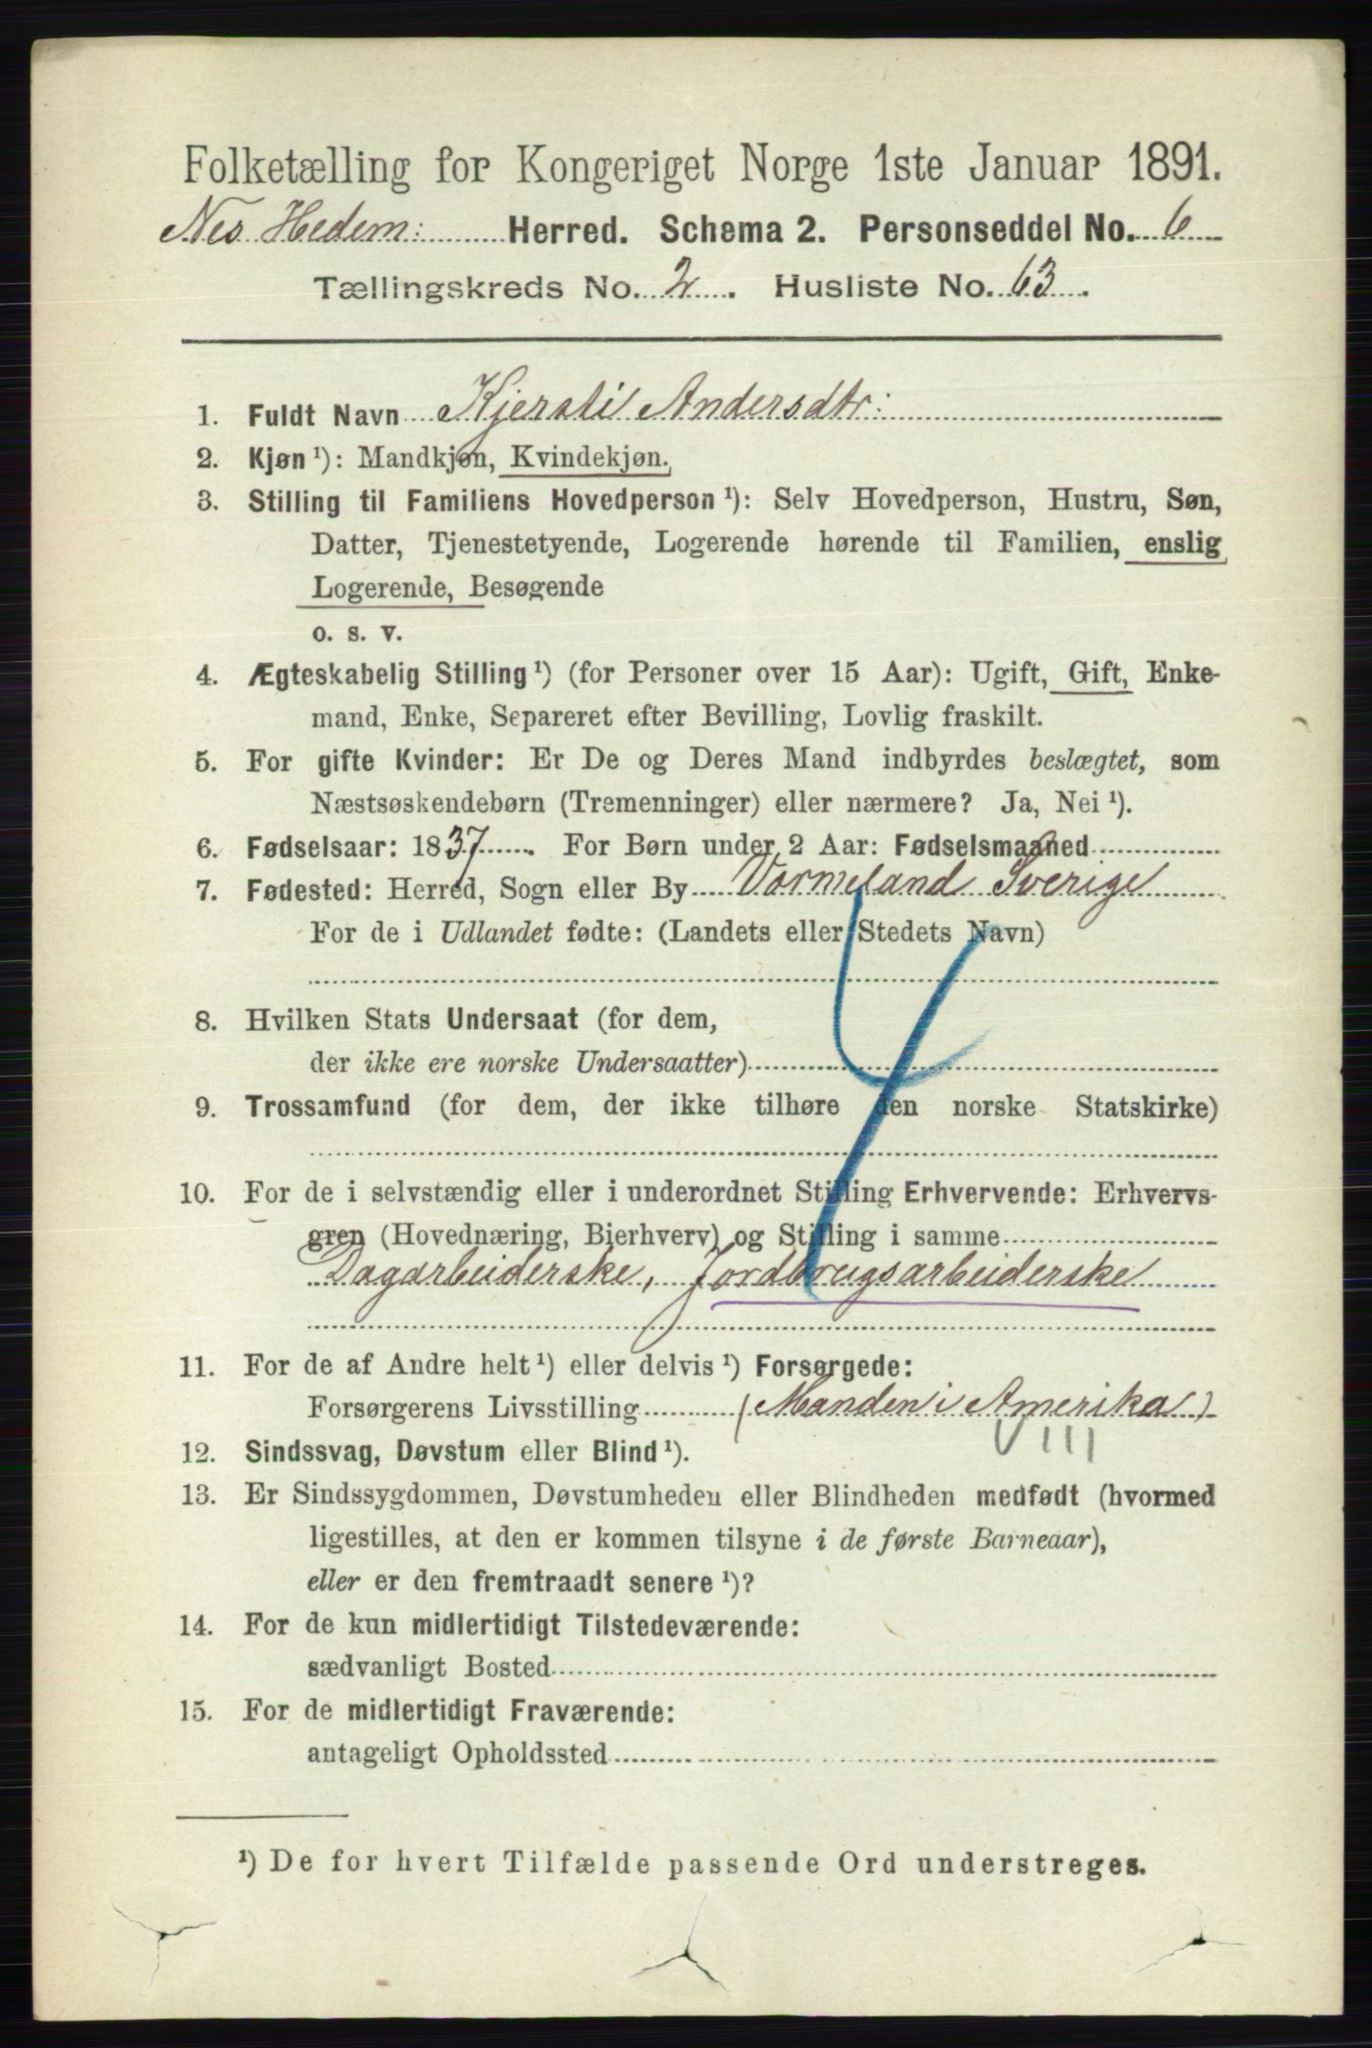 Folketælling for Kongeriget Norge 1ste Januar 1891.
Nes Hedem: Herred. Schema 2. Personseddel No. 6
Tællingskreds No. 2. Husliste No. 63.
1. Fuldt Navn Kjersti Andersdtr:
2. Kjøn ¹): Mandkjøn, Kvindekjøn.
3. Stilling til Familiens Hovedperson ¹): Selv Hovedperson, Hustru, Søn,
Datter, Tjenestetyende, Logerende hørende til Familien, enslig
Logerende, Besøgende
o. s. v.
4. Ægteskabelig Stilling ¹) (for Personer over 15 Aar): Ugift, Gift, Enke-
mand, Enke, Separeret efter Bevilling, Lovlig fraskilt.
5. For gifte Kvinder: Er De og Deres Mand indbyrdes beslægtet, som
Næstsøskendebørn (Tremenninger) eller nærmere? Ja, Nei ¹).
6. Fødselsaar: 1837. For Børn under 2 Aar: Fødselsmaaned
7. Fødested: Herred, Sogn eller By Vormeland Sverige
For de i Udlandet fødte: (Landets eller Stedets Navn)
8. Hvilken Stats Undersaat (for dem,
der ikke ere norske Undersaatter)
9. Trossamfund (for dem, der ikke tilhøre den norske Statskirke)
10. For de i selvstændig eller i underordnet Stilling Erhvervende: Erhvervs-
gren (Hovednæring, Bierhverv) og Stilling i samme
Dagarbeiderske, Jordbrugsarbeiderske
11. For de af Andre helt ¹) eller delvis ¹) Forsørgede:
Forsørgerens Livsstilling (Manden i Amerika)
VIII
12. Sindssvag, Døvstum eller Blind ¹).
13. Er Sindssygdommen, Døvstumheden eller Blindheden medfødt (hvormed
ligestilles, at den er kommen tilsyne i de første Barneaar),
eller er den fremtraadt senere ¹)?
14. For de kun midlertidigt Tilstedeværende:
sædvanligt Bosted
15. For de midlertidigt Fraværende:
antageligt Opholdssted
¹) De for hvert Tilfælde passende Ord understreges.